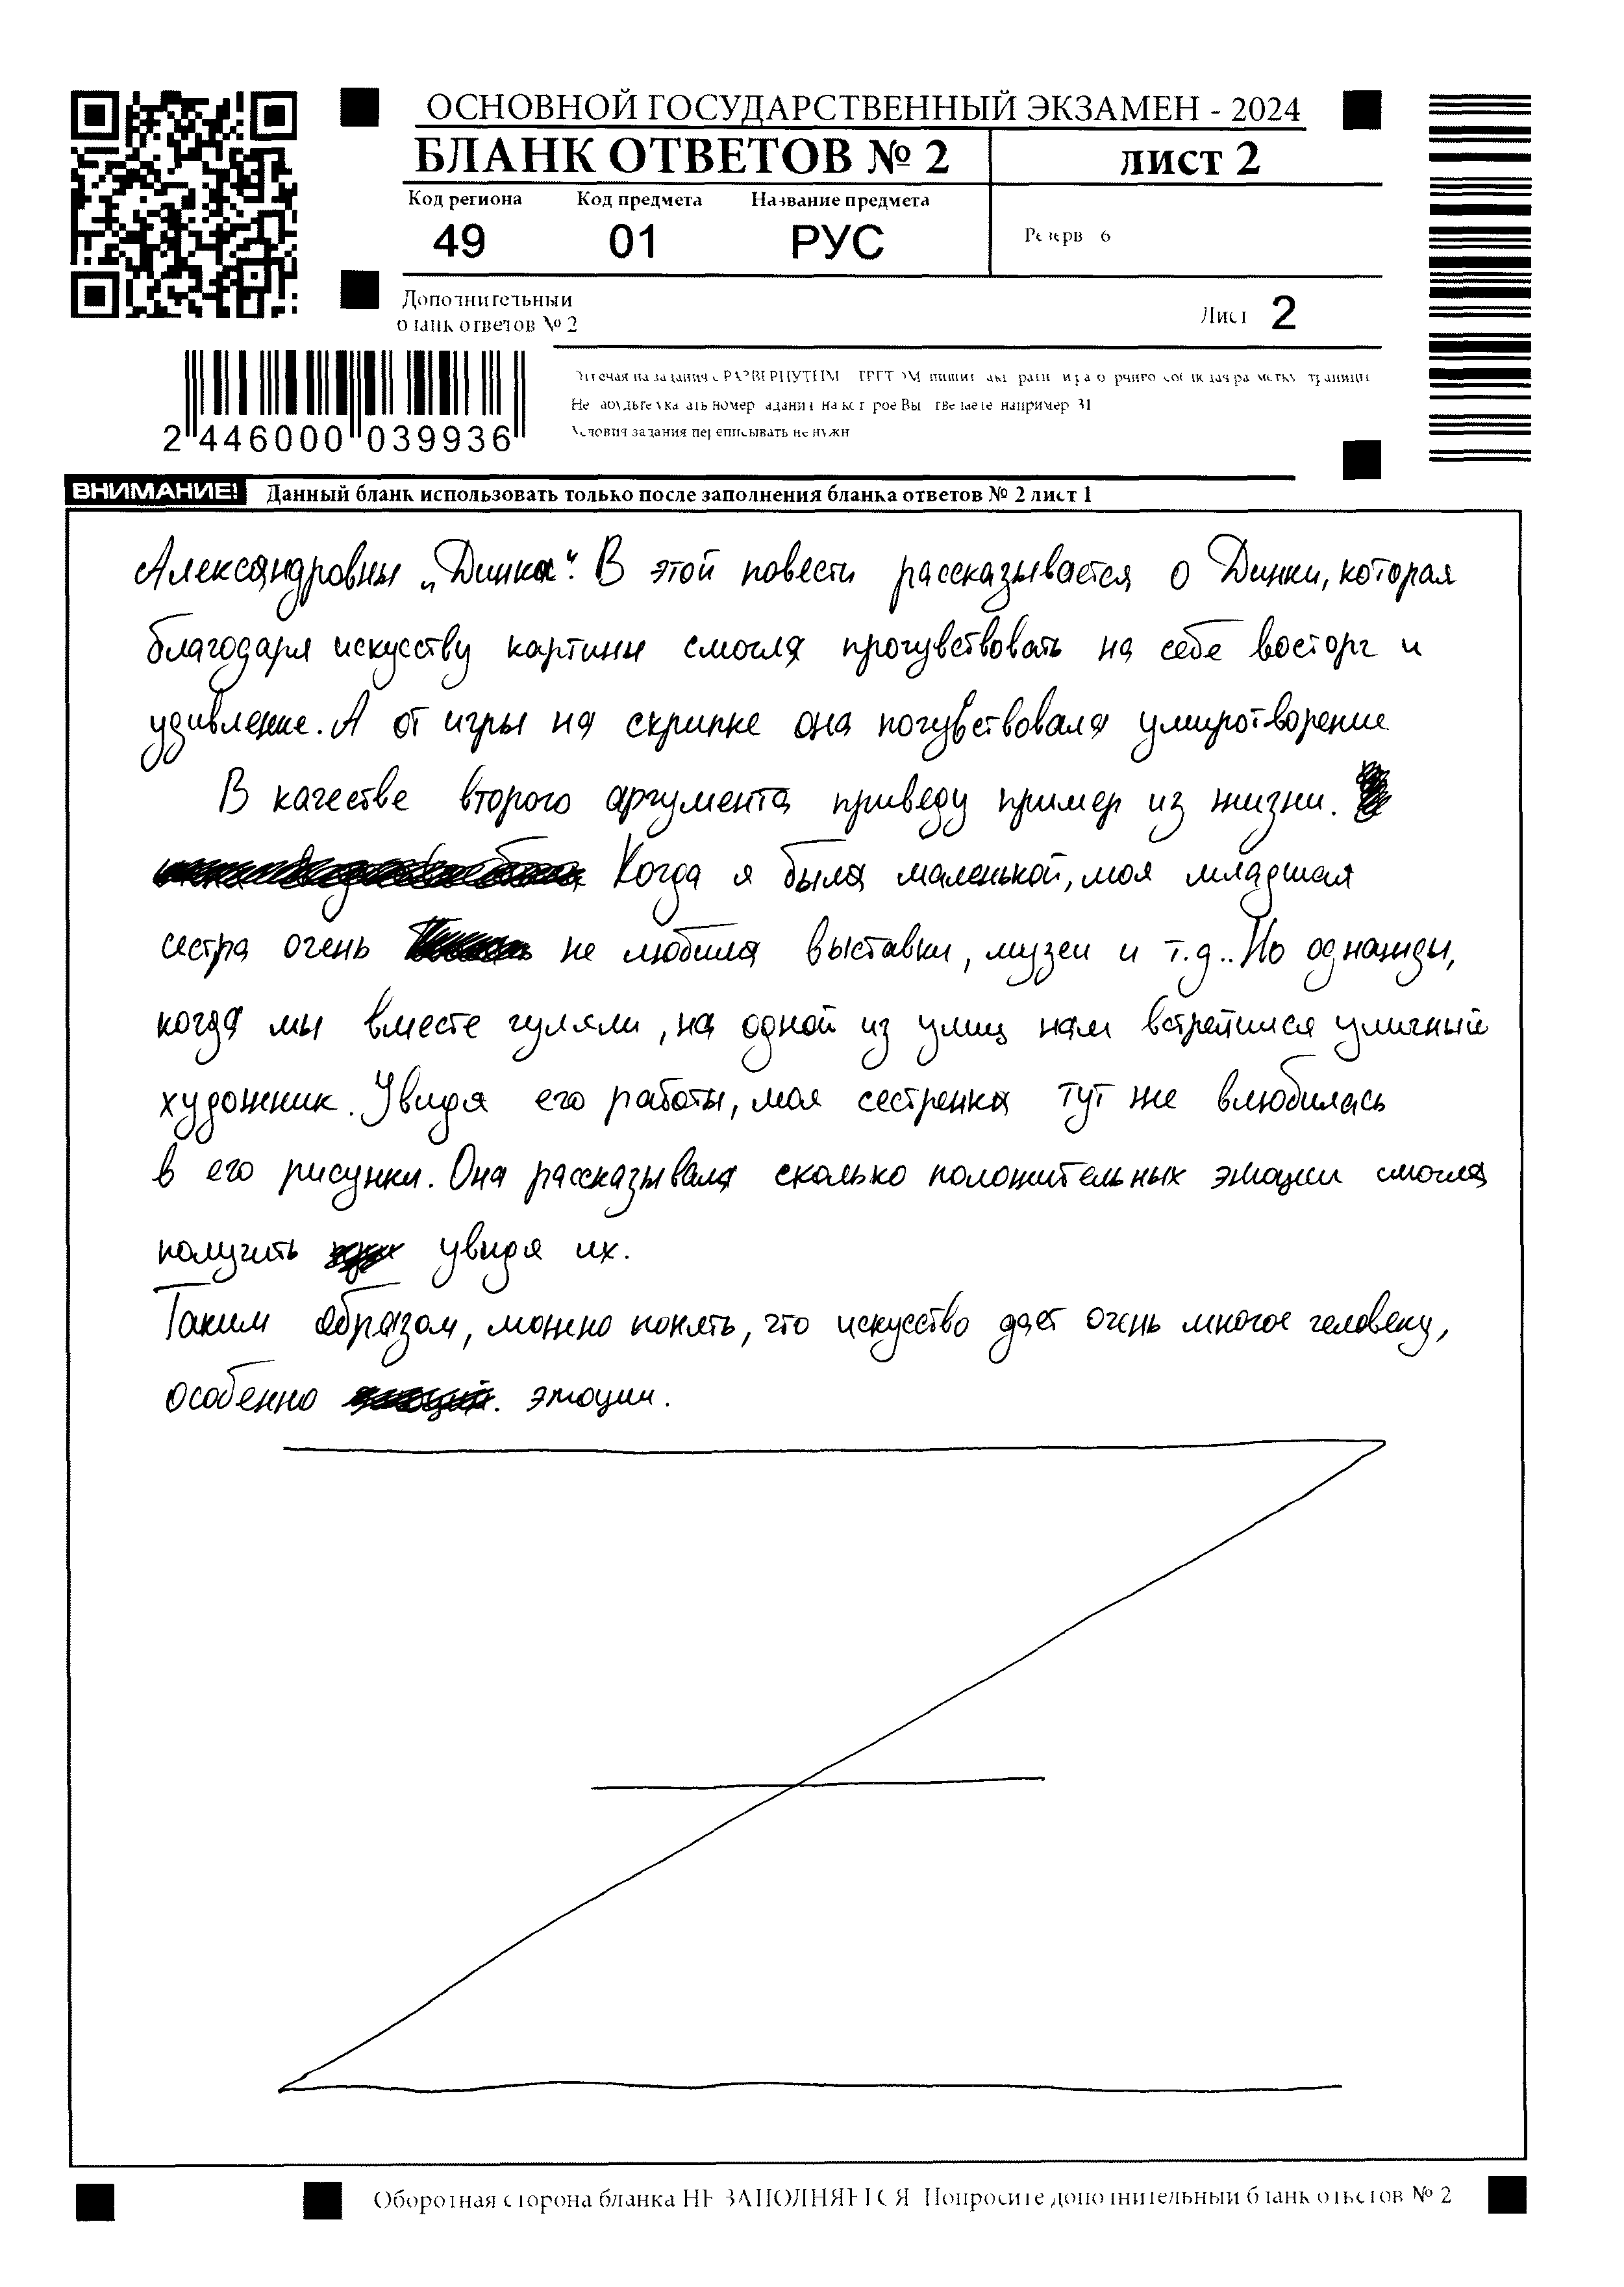 ОСНОВНОЙ ГОСУДАРСТВЕННЫЙ ЭКЗАМЕН - 2024
БЛАНК ОТВЕТОВ № 2 лист 2
Код региона Код предмета Название предмета
49 01 РУС Резерв 6
Дополнительный
бланк ответов № 2
Лист 2
2 446000 039936
Условия задания переписывать не нужно
ВНИМАНИЕ! Данный бланк использовать только после заполнения бланка ответов № 2 лист 1
Александровны „Динка“. В этой повести рассказывается о Динки, которая
благодаря искусству картины смогла прочувствовать на себе восторг и
удивление. А от игры на скрипке она почувствовала умиротворение
В качестве второго аргумента приведу пример из жизни.
Когда я была маленькой, моя младшая
сестра очень не любила выставки, музеи и т.д.. Но однажды,
когда мы вместе гуляли, на одной из улиц нам встретился уличный
художник. Увидя его работы, моя сестренка тут же влюбилась
в его рисунки. Она рассказывала сколько положительных эмоции смогла
получить увидя их.
Таким образом, можно понять, что искусство дает очень многое человеку,
особенно эмоции.
Оборотная сторона бланка НЕ ЗАПОЛНЯЕТСЯ Попросите дополнительный бланк ответов № 2